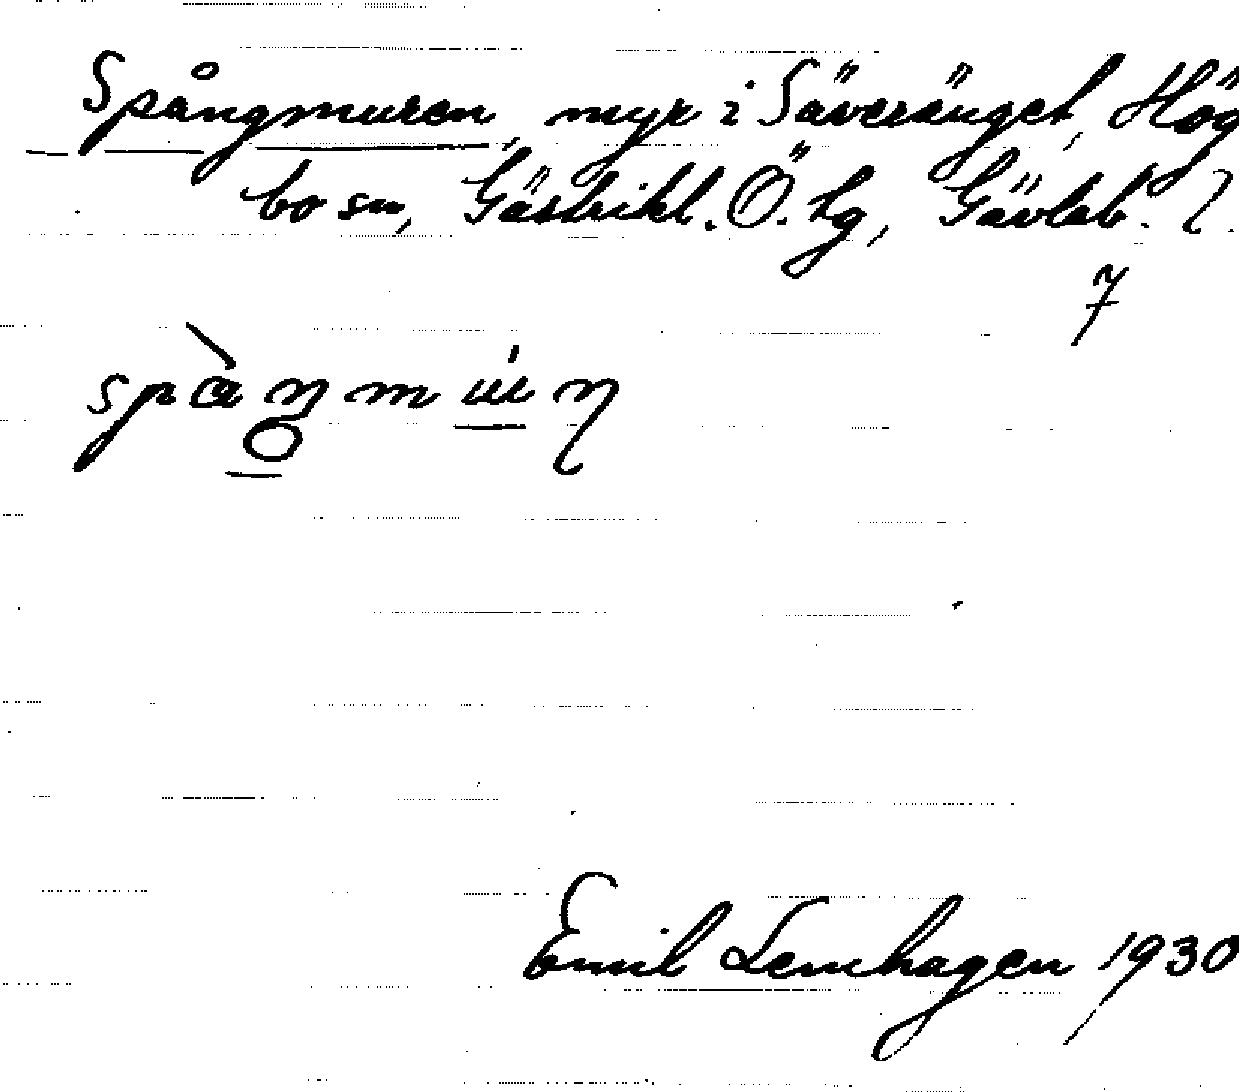 Spångmuren, myr i Säveränget, Hög
bo sn, Gästrikl. Ö. hg, Gävleb. l.
7
Emil Lemhagen 1930